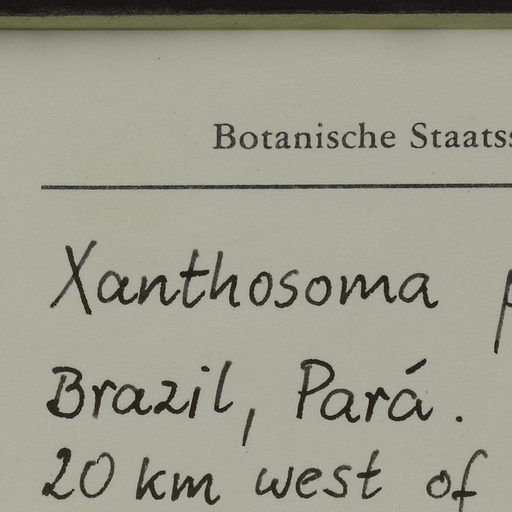 Botanische Staatss
Xanthosoma p
Brazil, Pará.
20 km west of